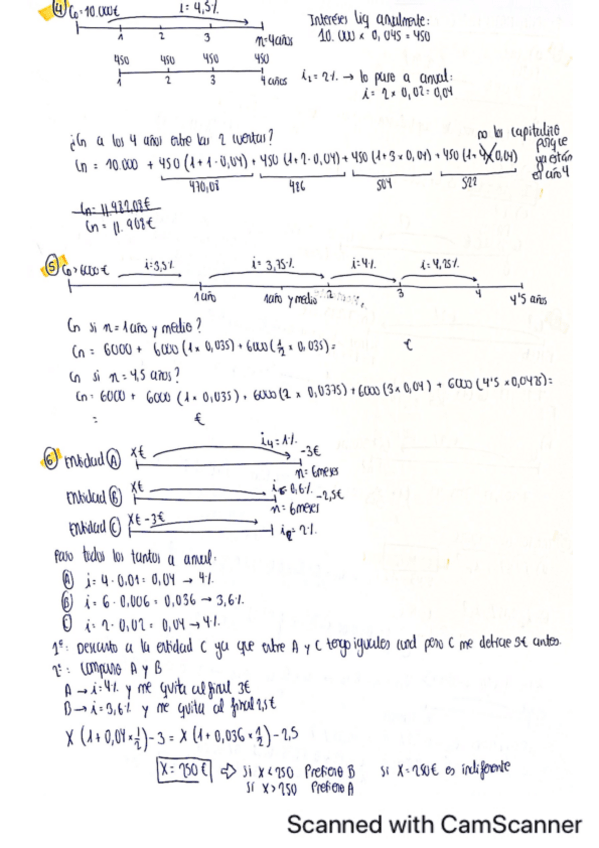 ④ Co=10.000€ i=4,5%
1 2 3 n=4años
Intereses liq anualmente:
10.000 x 0,045 = 450
450 450 450 450
1 2 3 4 años
i₂=2% → lo paso a anual:
i= 2 x 0,02= 0,04
¿Cn a los 4 años entre las 2 cuentas?
no los capitalizo porque ya están el año 4
Cn = 10.000 + 450 (1+1·0,04) + 450 (1+2·0,04) + 450 (1+3x0,04) + 450 (1+4x0,04)
470,08 486 504 522
Cn= 11.982,08€
Cn= 11.908€
⑤ Co=6000€ i=3,5% i= 3,75% i=4% i=4,25%
1año 1año y medio 2 3 4 4'5 años
Cn si n=1año y medio?
Cn = 6000 + 6000 (1x 0,035) + 6000 (1/2 x 0,035)= €
Cn si n=4,5 años?
Cn= 6000 + 6000 (1x 0,035) + 6000 (2 x 0,0375) + 6000 (3x0,04) + 6000 (4'5 x0,0425)=
= €
⑥ Entidad Ⓐ X€ i₄=1% -3€
n=6meses
Entidad Ⓑ X€ i₆=0,6% -2,5€
n=6meses
Entidad Ⓒ X€-3€ i₂=2%
Paso todos los tantos a anual:
Ⓐ i= 4·0,01= 0,04 → 4%
Ⓑ i= 6·0,006= 0,036 → 3,6%
Ⓒ i= 2·0,02= 0,04 → 4%
1º: Descarto a la entidad C ya que entre A y C tengo iguales cond pero C me detrae 3€ antes.
2º: Comparo A y B
A → i=4% y me quita al final 3€
B → i=3,6% y me quita al final 2,5€
X (1+0,04x1/2)-3 = X (1+0,036x1/2)-2,5
X=250€ ⇒ Si X<250 Prefiere B Si X=250€ es indiferente
Si X>250 Prefiere A
Scanned with CamScanner